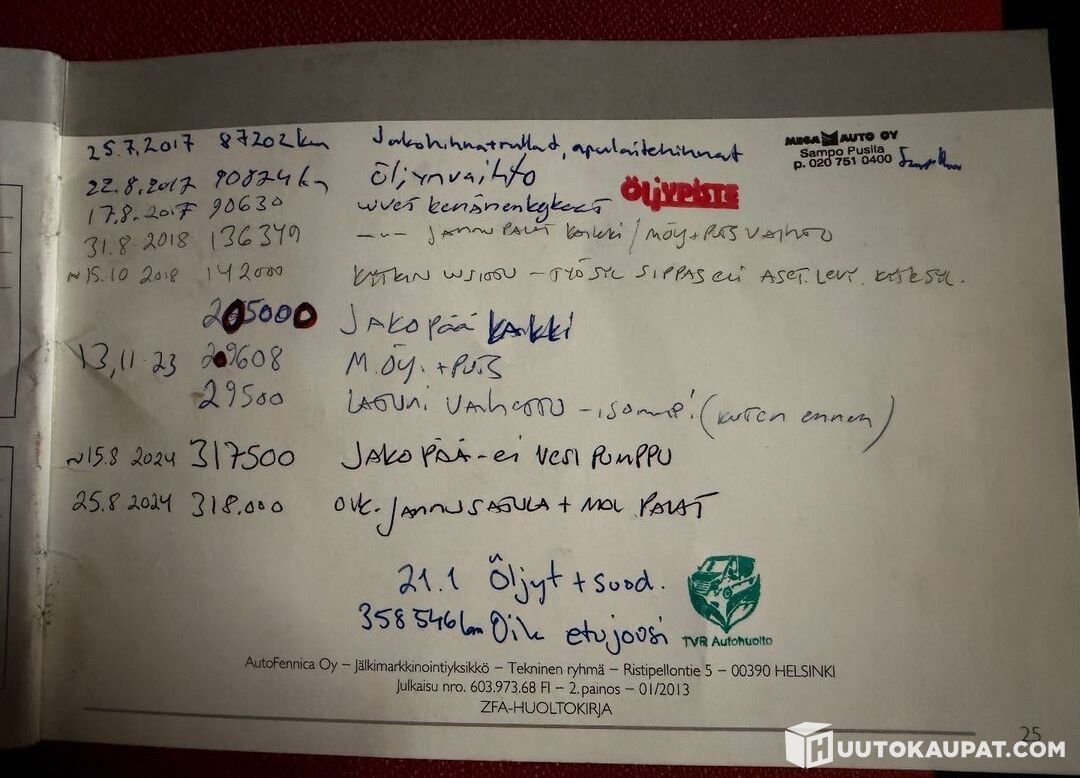 25.7.2017 87202km Jakohihnat rullat, apulaitehihnat
MEGA AUTO OY
Sampo Pusila
p. 020 751 0400
22.8.2017 90824km Öljynvaihto
ÖLJYPISTE
17.8.2017 90630 uudet
31.8 2018 136349 JARRU PALAT kaikki / MÖY + PUTS VAIHTO
~15.10 2018 142000 KYTKIN UUSITTU - TYÖSYL
205000 JAKOPÄÄ KAIKKI
13.11.23 209608 M.ÖY. + PUTS
29500 LATURI VAIHETTU - isompi (kuten ennen)
~15.8 2024 317500 JAKOPÄÄ - ei VESIPUMPPU
25.8 2024 318.000 OIK. JARRUSATULA + MOL PALAT
21.1 Öljyt + suod.
358546km Oik etujousi
TVR Autohuolto
AutoFennica Oy – Jälkimarkkinointiyksikkö – Tekninen ryhmä – Ristipellontie 5 – 00390 HELSINKI
Julkaisu nro. 603.973.68 FI – 2.painos – 01/2013
ZFA-HUOLTOKIRJA
25
HUUTOKAUPAT.COM